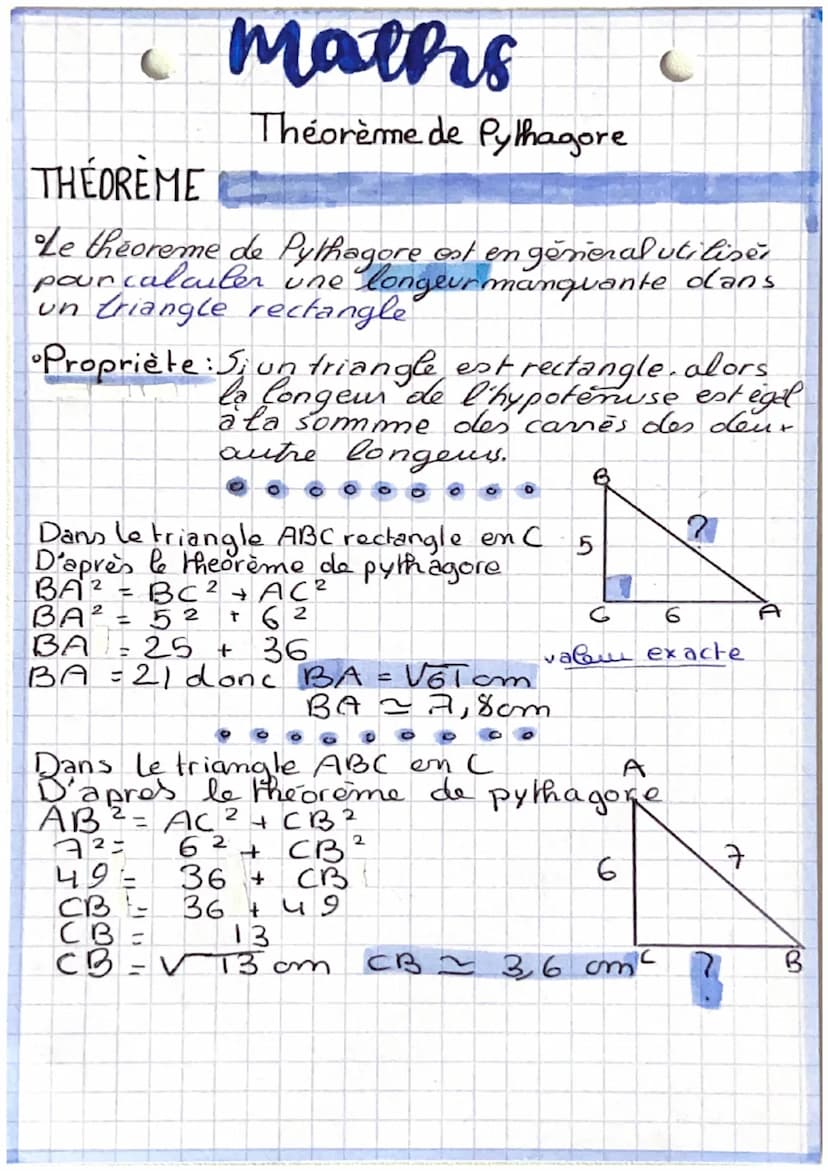 Maths
Théorème de Pythagore
THÉORÈME
Le théoreme de Pythagore est en général utiliser
pour calculer une longeur manquante dans
un triangle rectangle
Propriète : Si un triangle est rectangle. alors
la longeur de l'hypoténuse est égal
à la somme des carrès des deux
autre longeurs.
B
Dans le triangle ABC rectangle en C
5
?
D'après le theorème de pythagore
BA² = BC² + AC²
C 6 A
BA² = 5² + 6²
BA = 25 + 36
valeur exacte
BA = 21 donc BA = √61 cm
BA ≃ 7,8cm
Dans le triangle ABC en C
A
D'apres le théorème de pythagore
AB² = AC² + CB²
7² = 6² + CB²
6
7
49 = 36 + CB
CB = 36 + 49
CB = 13
CB = √13 cm CB ≃ 3,6 cm
C ? B